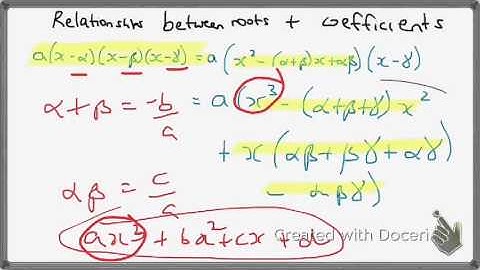 Relationships between roots + coefficients
a(x-α)(x-β)(x-γ) = a(x²-(α+β)x+αβ)(x-γ)
α+β = -b/a = a(x³ - (α+β+γ)x²
+ x(αβ+βγ+αγ)
αβ = c/a - αβγ)
ax³ + bx² + cx + d
Created with Doceri